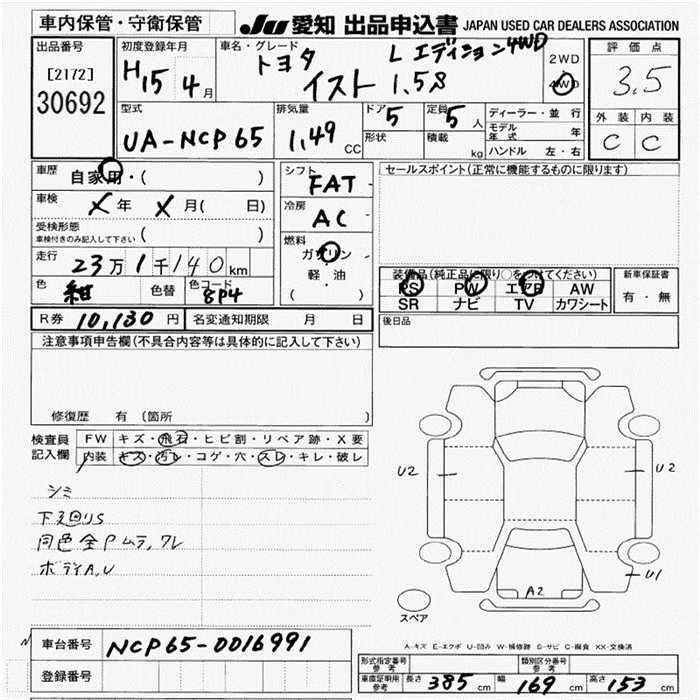 車内保管・守衛保管
JU 愛知 出品申込書 JAPAN USED CAR DEALERS ASSOCIATION
出品番号
[2172]
30692
初度登録年月
H15 4月
車名・グレード
トヨタ L エディション4WD
イスト 1.5S
2WD
4WD
評価点
3.5
外装 内装
C C
型式
UA-NCP65
排気量
1.49 CC
ドア 5
形状
定員 5人
積載 kg
ディーラー・並行
モデル年式 年
ハンドル 左・右
車歴
自家用・( )
車検
X年 X月( 日)
受検形態
車検付きのみ記入して下さい ( )
走行
23万1千140km
色 紺 色替 色コード 8P4
シフト
FAT
冷房
AC
燃料
ガソリン
軽油
( )
セールスポイント(正常に機能するものに限ります)
装備品(純正品に限り○をつけてください)
PS PW エアB AW
SR ナビ TV カワシート
新車保証書
有・無
R券 10,130円 名変通知期限 月 日
後日品
注意事項申告欄(不具合内容等は具体的に記入して下さい)
修復歴 有 (箇所 )
検査員記入欄
FW キズ・飛石・ヒビ割・リペア跡・X要
内装 キズ・汚レ・コゲ・穴・スレ・キレ・破レ
シミ
下廻りS
同色全Pムラ,ワレ
ボディA,U
U2
U2
U1
A2
スペア
A-キズ E-エクボ U-凹み W-補修跡 S-サビ C-腐食 XX-交換済
車台番号 NCP65-0016991
登録番号
型式指定番号 参考
類別区分番号 参考
車庫証明用 参考 長さ 385cm 幅 169cm 高さ 153cm